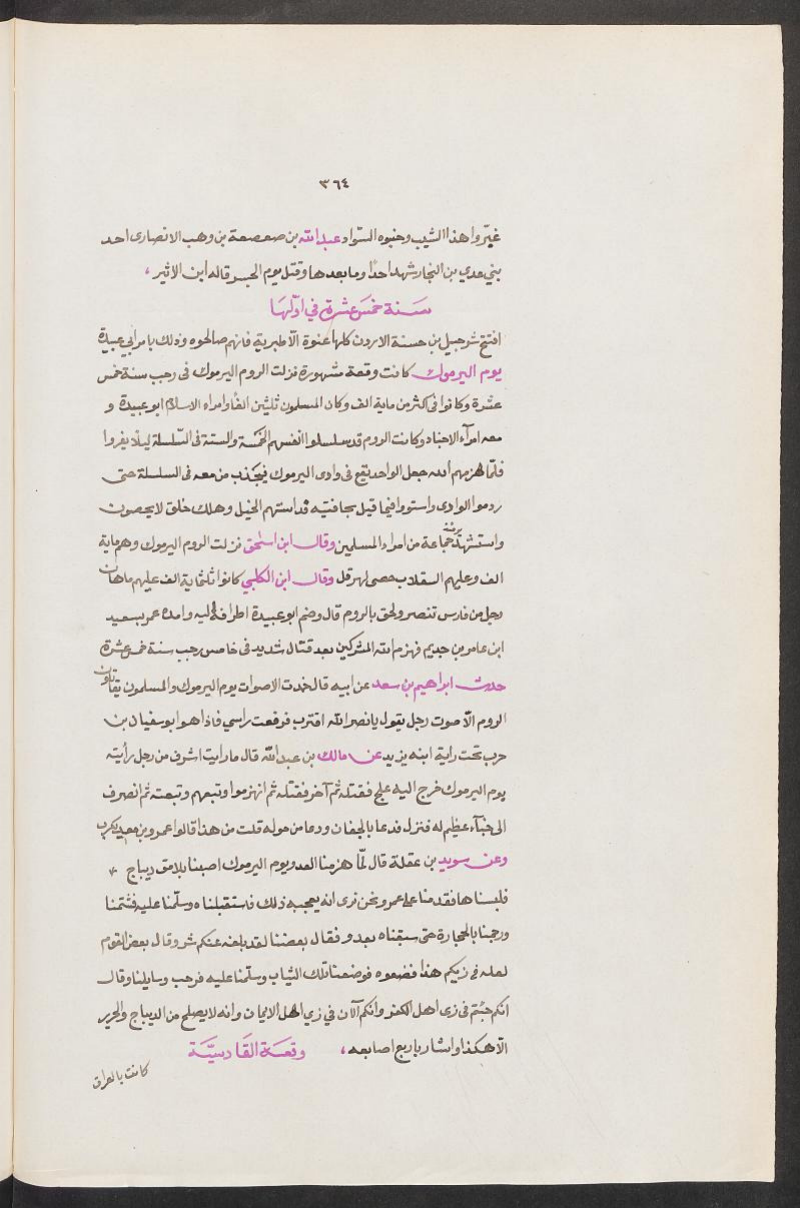 ٣٦٤
غيّروا هذا الشيب وجنبوه السّواد عبد الله بن صعصعة بن وهب الانصارى احد
بني عدي بن النجار شهد احدًا وما بعدها وقتل يوم الجسر قاله ابن الاثير ،
سَنة خمسَ عشرة في اوّلهَا
افتتح شرحبيل بن حسنة الاردن كلها عنوة الّا طبرية فانهم صالحوه وذلك بامر ابي عبيدة
يوم اليرموك كانت وقعة مشهورة نزلت الروم اليرموك فى رجب سنة خمس
عشرة وكانوا فى اكثر من ماية الف وكان المسلمون ثلثين الفًا وامراء الاسلام ابو عبيدة و
معه امرآء الاجناد وكانت الروم قد سلسلوا انفسهم الخمسة والستة فى السّلسلة ليلا يفروا
فلمّا هزمهم الله جعل الواحد يقع فى وادى اليرموك فيجذب من معه فى السلسلة حتى
ردموا الوادى واستووا فيما قيل بحافتيه فداستهم الخيل وهلك خلق لا يحصون
واستشهد يومئذ جماعة من امراء المسلمين وقال ابن اسحق نزلت الروم اليرموك وهم ماية
الف وعليهم السقلاب خصى لهرقل وقال ابن الكلبي كانوا ثلثماية الف عليهم ماهان
رجل من فارس تنصر ولحق بالروم قال وضم ابو عبيدة اطرافه اليه وامده عمر بسعيد
ابن عامر بن جديم فهزم الله المشركين بعد قتال شديد فى خامس رجب سنة خمس عشرة
حدث ابراهيم بن سعد عن ابيه قال خمدت الاصوات يوم اليرموك والمسلمون يقاتلون
الروم الّا صوت رجل يقول يا نصر الله اقترب فرفعت راسي فاذا هو ابو سفيان بن
حرب تحت راية ابنه يزيد عن مالك بن عبد الله قال ما رايت اشرف من رجل رأيته
يوم اليرموك خرج اليه علج فقتله ثم آخر فقتله ثم انهزموا وتبعهم وتبعته ثم انصرف
الى خبآء عظيم له فنزل فدعا بالجفان ودعا من حوله قلت من هذا قالوا عمرو بن معديكرب
وعن سويد بن غفلة قال لمّا هزمنا العدو يوم اليرموك اصبنا يلامق ديباج
فلبسناها فقدمنا على عمر ونحن نرى انه يعجبه ذلك فاستقبلناه وسلّمنا عليه فشتمنا
ورجمنا بالحجارة حتى سبقناه بعدو فقال بعضنا لقد بلغه عنكم شر وقال بعض القوم
لعله فى زيكم هذا فضعوه فوضعنا تلك الثياب وسلّمنا عليه فرحب وسايلنا وقال
انكم جئتم فى زى اهل الكفر وانكم الآن في زي اهل الايمان وانه لا يصلح من الديباج والحرير
الّا هكذا واشار باربع اصابعه ، وقعَة القَادسيَّة
كانت بالعراق